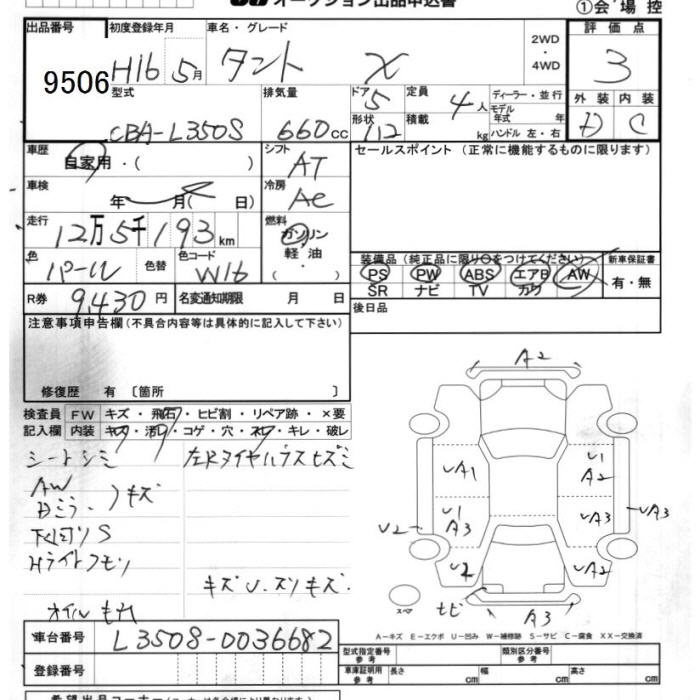 オークション出品申込書
①会場控
出品番号 初度登録年月 車名・グレード 2WD・4WD 評価点
9506 H16 5月 タント X 3
型式 排気量 ドア 5 定員 4人 ディーラー・並行
モデル年式 年式
外装 内装
CBA-L350S 660cc 形状 112 積載 kg ハンドル 左・右 D C
車歴 自家用・( ) シフト AT セールスポイント (正常に機能するものに限ります)
車検 年 月( 日) 冷房 AC
走行 12万5千193km 燃料 ガソリン
色 パール 色替 色コード W16 軽油・( )
装備品 (純正品に限り○をつけてください) 新車保証書
PS PW ABS エアB AW 有・無
SR ナビ TV カワ
R券 9,430円 名変通知期限 月 日 後日品
注意事項申告欄 (不具合内容等は具体的に記入して下さい)
修復歴 有 〔箇所 〕
検査員 FW キズ・飛石・ヒビ割・リペア跡・×要
記入欄 内装 キズ・汚レ・コゲ・穴・スレ・キレ・破レ
シートシミ 左Rタイヤハウスヒズミ
AW
Dミラー 〉キズ
下回りS
Hライトクモリ
キズU.スリキズ.
オイルもれ
A2
UA1 U1 A2
U1 A3 UA3
U2 UA3
U2 UA2
スペア
A3
A-キズ E-エクボ U-凹み W-補修跡 S-サビ C-腐食 XX-交換済
車台番号 L350S-0036682
型式指定番号 参考 類別区分番号 参考
登録番号 車庫証明用 参考 長さ cm 幅 cm 高さ cm